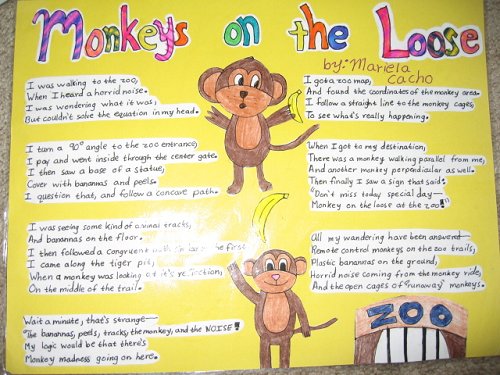 Monkeys on the Loose
by: Mariela Cacho
I was walking to the zoo,
When I heard a horrid noise.
I was wondering what it was,
But couldn't solve the equation in my head.
I turn a 90° angle to the zoo entrance,
I pay and went inside through the center gate.
I then saw a base of a statue,
Cover with banannas and peels.
I question that, and follow a concave path.
I was seeing some kind of animal tracks,
And banannas on the floor.
I then followed a congruent path the first
I came along the tiger pit,
When a monkey was looking at it's reflection,
On the middle of the trail.
Wait a minute, that's strange—
The banannas, peels, tracks, the monkey, and the NOISE!
My logic would be that there's
Monkey madness going on here.
I got a zoo map,
And found the coordinates of the monkey area.
I follow a straight line to the monkey cages,
To see what's really happening.
When I got to my destination,
There was a monkey walking parallel from me,
And another monkey perpendicular as well.
Then finally I saw a sign that said:
"Don't miss today special day—
Monkey on the loose at the zoo!"
All my wandering have been answered—
Remote control monkeys on the zoo trails,
Plastic banannas on the ground,
Horrid noise coming from the monkey ride,
And the open cages of "runaway" monkeys.
ZOO